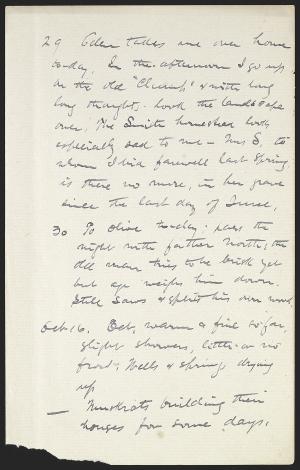 29 Eden takes me over home
to-day. In the afternoon I go up
on the old "Clump" & with long
long thoughts look the landscape
over. The Smith homestead looks
especially sad to me — Mrs S, to
whom I bid farewell last spring,
is there no more, in her grave
since the last day of June,
30 To Olive to-day; pass the
night with father North; the
old man tries to be brisk yet
but age weighs him down.
Still saws & splits his own wood.
Oct. 16. Oct, warm & fine so far,
slight showers, little or no
frost; Wells & springs drying
up
— Muskrats building their
houses for some days.